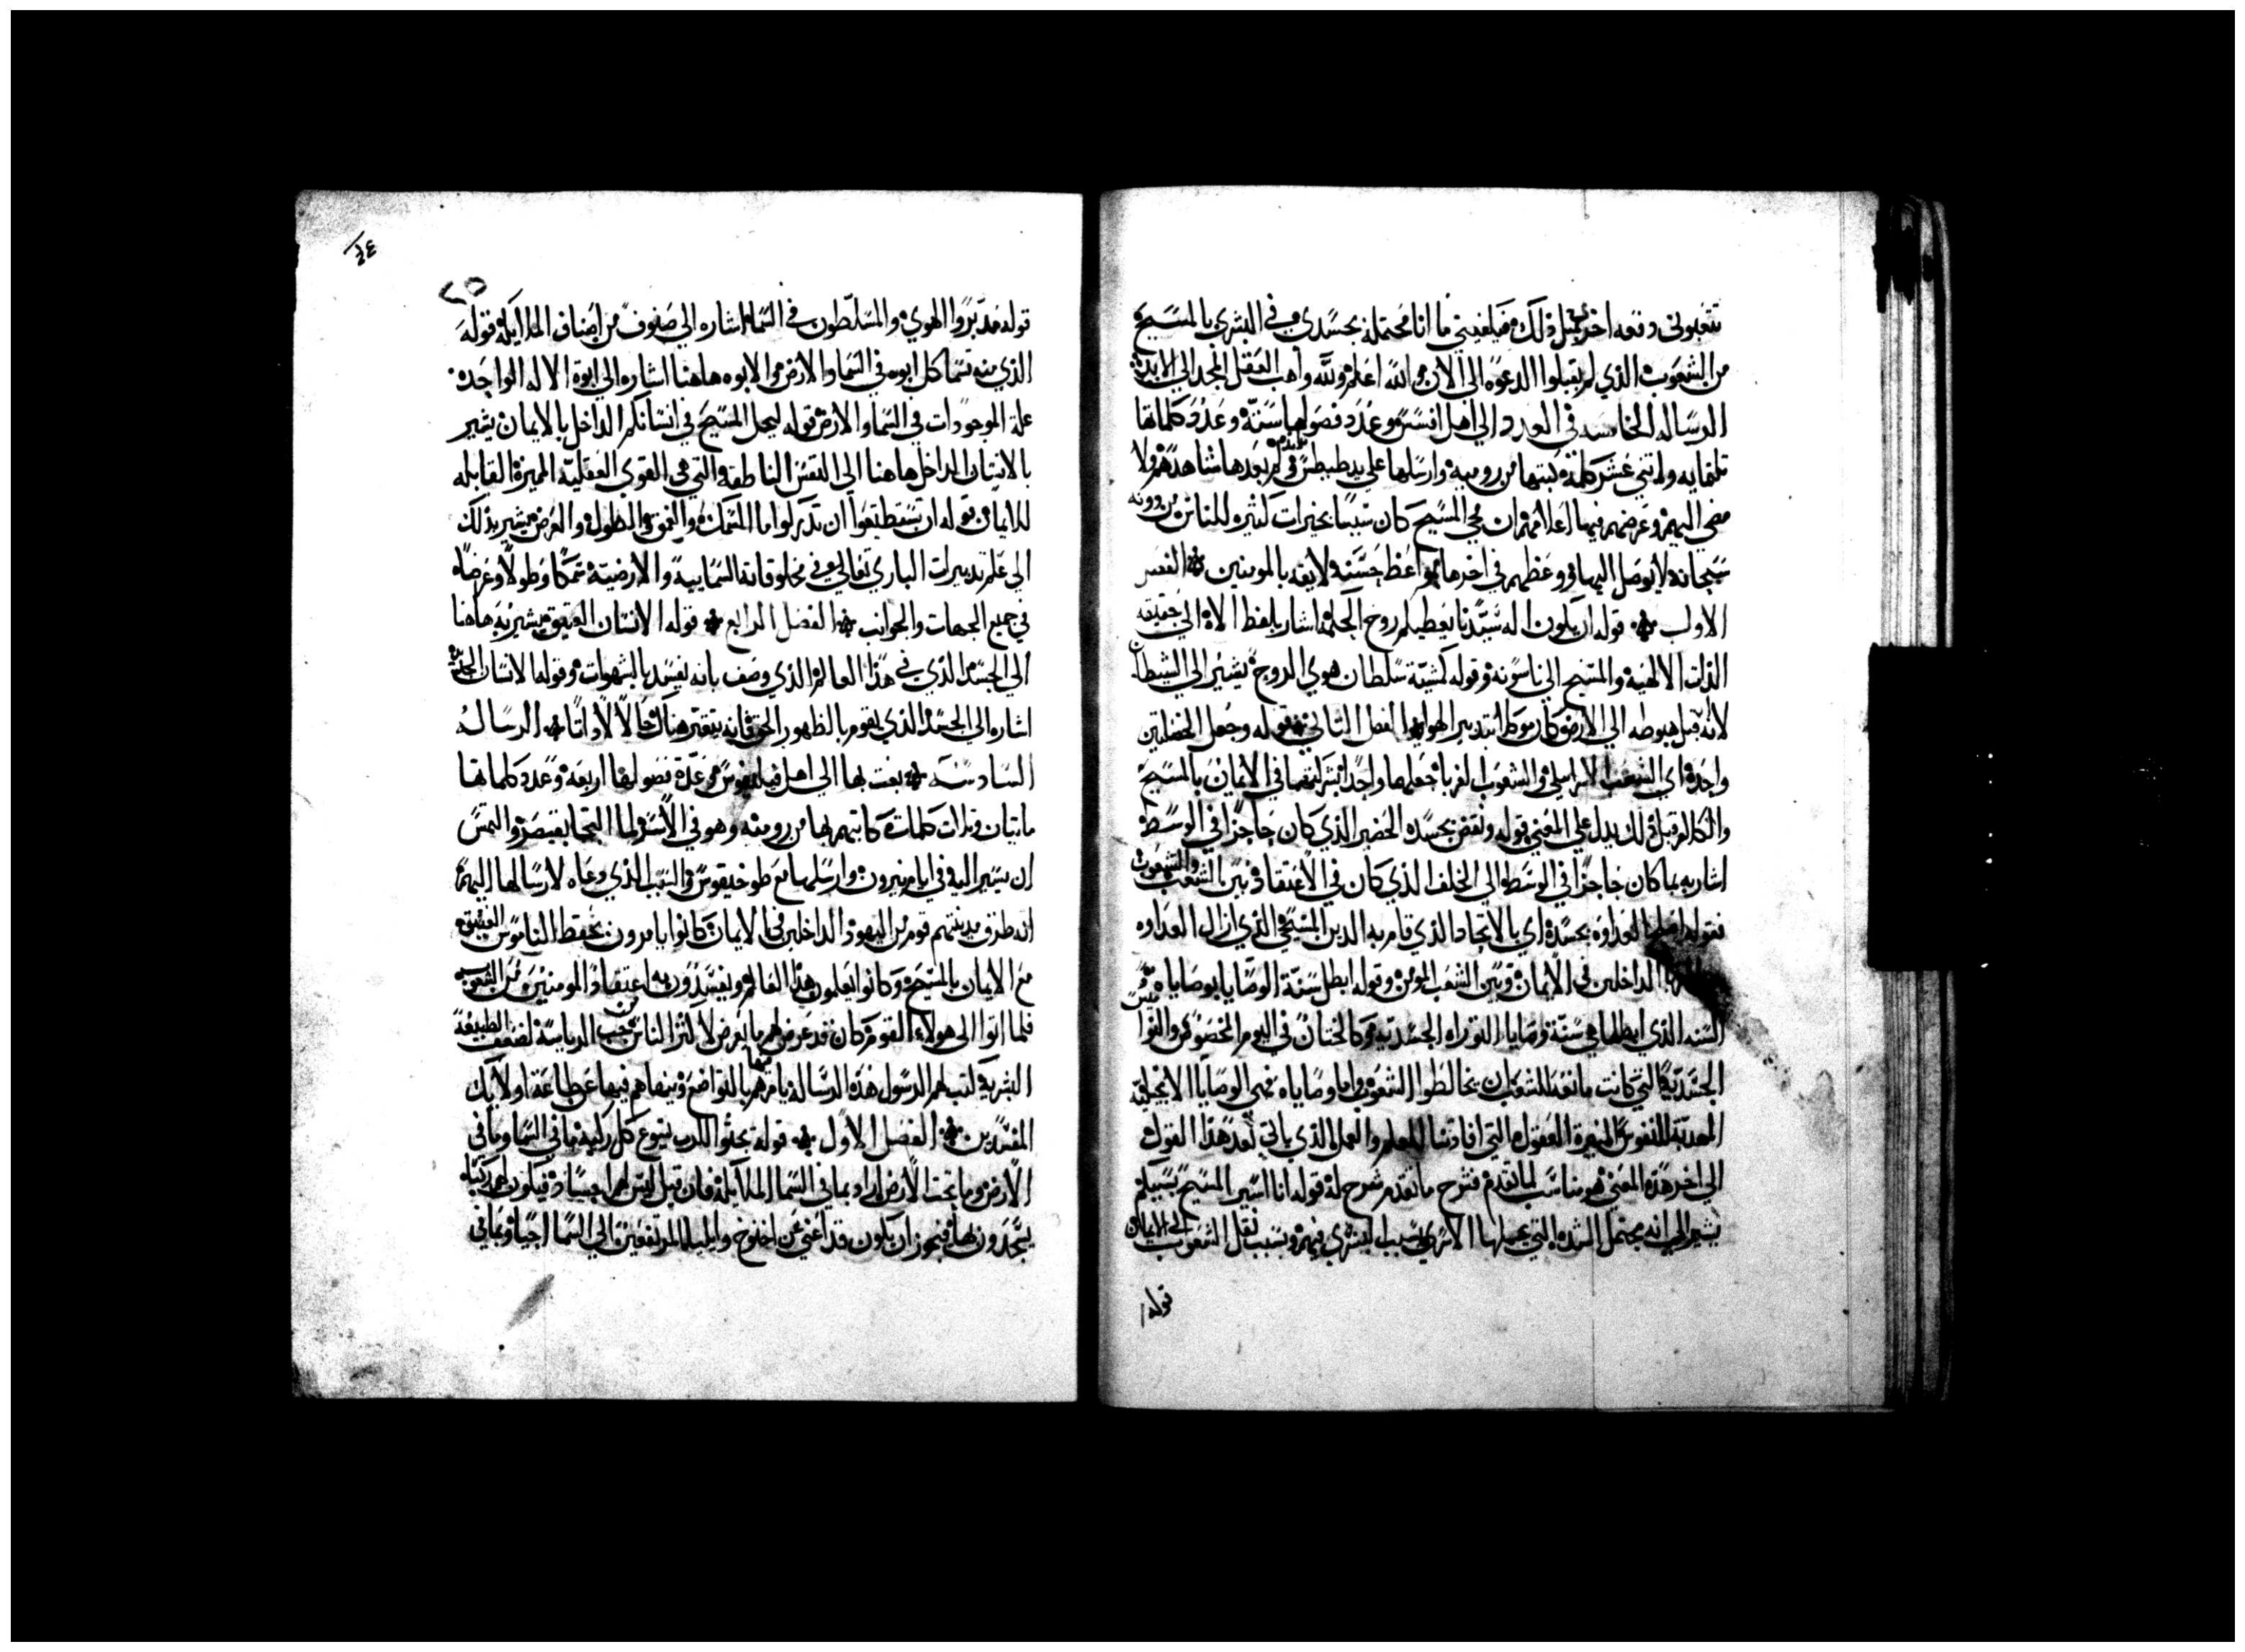 تتعبوني ومعه اخر مثل ذلك فيلغيني ما انا محتمله بجسدي في البشري بالمسيح
من الشعوب الذي لم يقبلوا الدعوه الي الان والله اعلم ولله واهب العقل المجد الي الابد
الرساله الخامسه في العدد الي اهل افسس وعدد فصولها ستة وعدد كلماتها
ثلثمايه واثني عشر كلمة كتبها من روميه وارسلها علي يد طيطس ثم بعدها شاهدهم ولا
مضي اليهم وغرضهم فيها اعلامهم ان مجي المسيح كان سببا لخيرات كثيره للناس من دونه
سبحانه لا يوصل اليها ووعظهم في اخرها بمواعظ حسنه لايقه بالمومنين الفصل
الاول قوله ان يكون اله سيدنا يعطيكم روح الحكمة اشار بلفظ الاله الي حقيقه
الذات الالهيه والمسيح الي ناسوته وقوله كشيئة سلطان هوي الروح يشير الي الشيطان
لانه قبل هبوطه الي الارض كان موكلا بتدبير الهوا الفصل الثاني قوله وجعل الخصلتين
واحدة اي الشعب الاسرايلي والشعوب الغربا جعلها واحدا بشركتهما في الايمان بالمسيح
والكلام قبل ذلك يدل علي المعني قوله ونقض بجسده الحضير الذي كان حاجزا في الوسط
اشار به بما كان حاجزا في الوسط الي الخلف الذي كان في الاعتقاد بين الشعب والشعوب
فقوله العداوه بجسده اي بالاتحاد الذي قام به الدين المسيحي الذي ازال العداوه
الداخلين في الايمان وبين الشعب المومن وقوله ابطل سنة الوصايا بوصاياه
السنه الذي ابطلها هي سنة وصايا التوراه الجسديه كالختان في اليوم المخصوص
الجسديه التي كانت مانعه للشعب ان يخالطوا الشعوب واما وصاياه فهي الوصايا الانجيليه
المهذبة للنفوس المنيرة العقول التي افادتنا العلم والعمل الذي ياتي بعد هذا القول
الي اخر هذه المعني هو مناسب لما تقدم فشرح ما تقدم شرح له قوله انا اسير المسيح بسببكم
يشير الي انه يحتمل الشده التي عملها الاسري بسبب البشري فيهم وبسبب نقل الشعوب الي الايمان
قوله
٢٥
قوله مدبروا الهوي والمسلطون في السما اشاره الي صنوف من اصناف الملايكة قوله
الذي منه تسما كل ابوه في السما والارض الابوه هاهنا اشاره الي ابوة الاله الواحد
علة الموجودات في السما والارض قوله ليحل المسيح في انسانكم الداخل بالايمان يشير
بالانسان الداخل هاهنا الي النفس الناطقه والتي هي القوي العقلية المميزة القابله
للايمان قوله ان تستطيعوا ان تدركوا ما السمك والعمق والطول والعرض يشير بذلك
الي علم تدبيرات الباري تعالي في مخلوقاته السماييه والارضيه سمكا وطولا وعرضا
في جميع الجهات والجوانب الفصل الرابع قوله الانسان العتيق يشير به هاهنا
الي الجسد الذي في هذا العالم الذي وصف بانه يفسد بالشهوات وقوله الانسان الجديد
اشاره الي الجسد الذي يقوم بالظهور الحق فانه يتغير هناك حالا لاذاتا الرساله
السادسه بعث بها الي اهل فيلبوس وعدة فصولها اربعة وعدد كلماتها
مايتان وثلاث كلمات كاتبهم بها من روميه وهو في الاسر لما التجا بقيصر والتمس
ان يسير اليه في ايام نيرون وارسلها مع طوخيقوس والسبب الذي دعاه لارسالها اليهم
انه طرق مدينتهم قوم من اليهود الداخلين في الايمان كانوا يامرون بحفظ الناموس العتيق
مع الايمان بالمسيح وكانوا يعلمون هذا العالم ويفسدون به اعتقاد المومنين من الشعوب
فلما اتوا الي هولاء القوم كان قد عرض لهم ما يعرض لاكثر الناس من حب الرياسة لضعف الطبيعة
البشرية كتب لهم الرسول هذه الرسالة يامرهم فيها بالتواضع وينهاهم فيها عن طاعة اولايك
المفسدين الفصل الاول قوله تجثوا لاسم يسوع كل ركبة ما في السما وما في
الارض وما تحت الارض اراد بما في السما الملايكة فان قيل ليس لهم اجساد فيكون لهم ركب
يسجدون بها فيجوز ان يكون قد اعني عن اخنوخ وايليا المرتفعين الي السما احيا وبما في